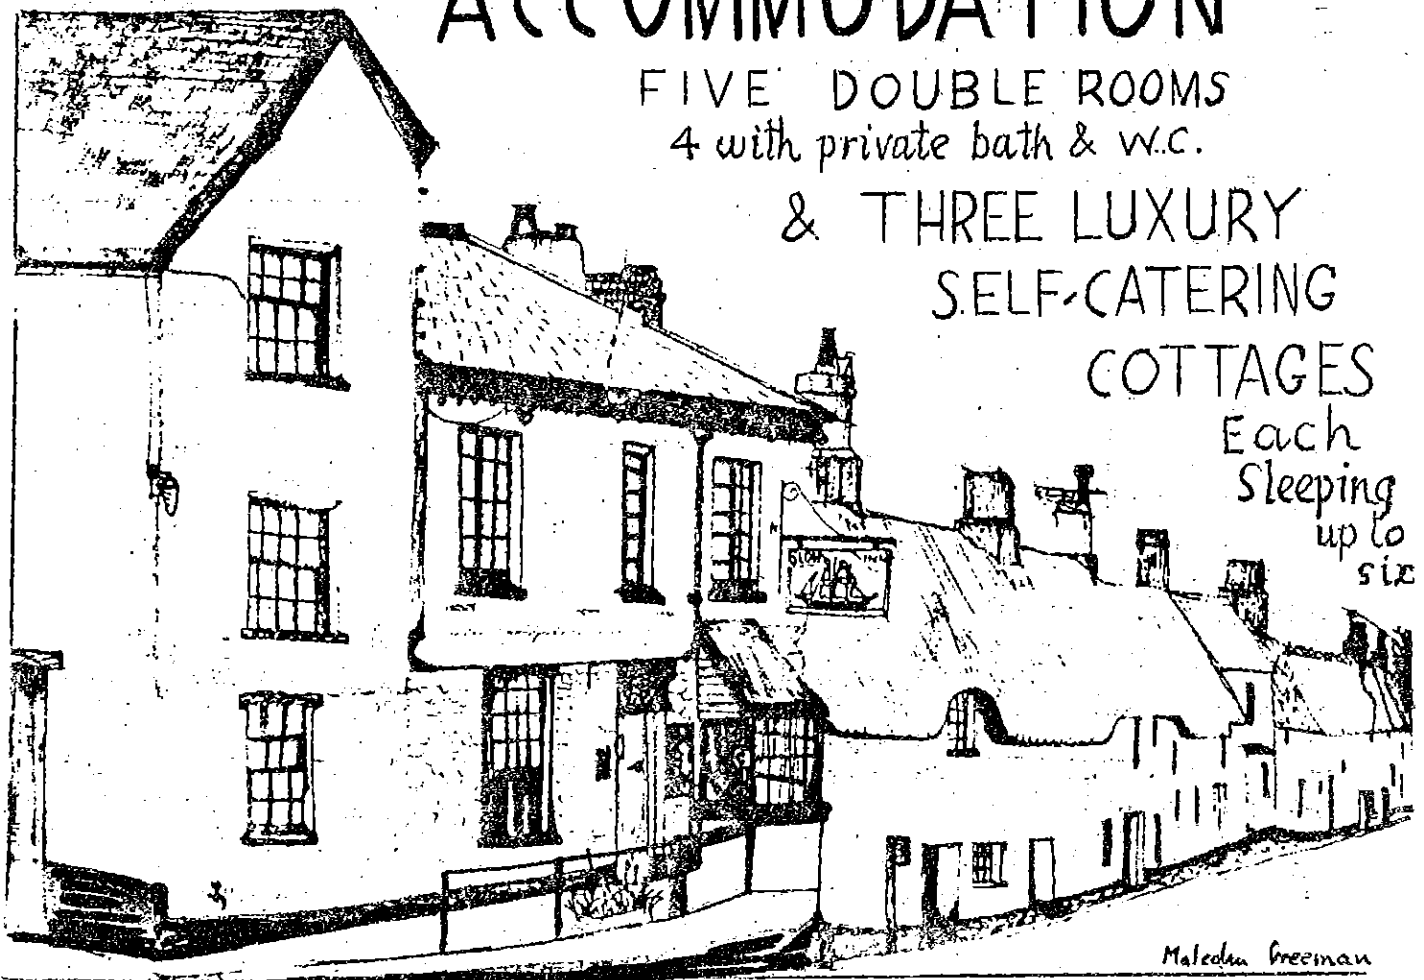 ACCOMMODATION
FIVE DOUBLE ROOMS
4 with private bath & W.C.
& THREE LUXURY
SELF-CATERING
COTTAGES
Each
Sleeping
up to
six
INN
Malcolm Greeman